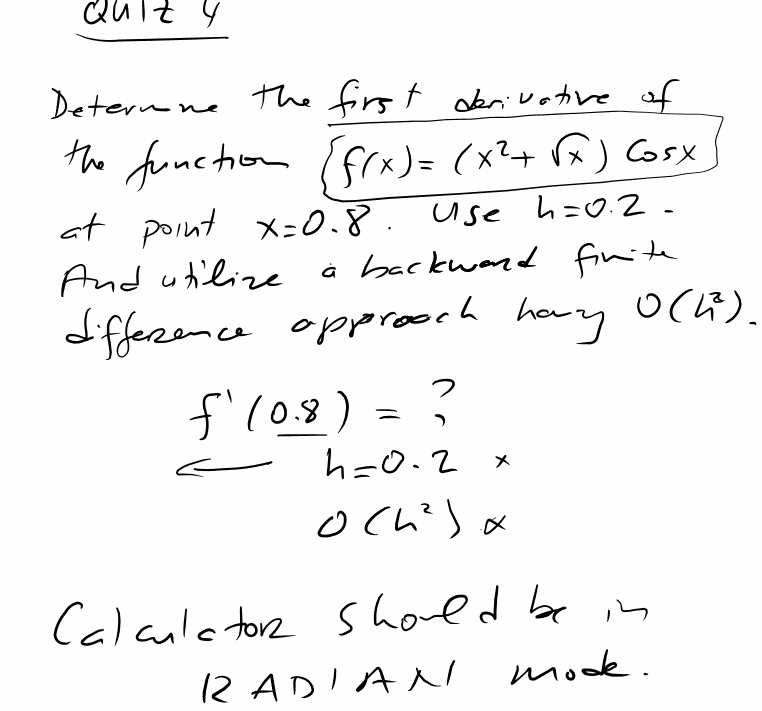 QUIZ 4
Determine the first derivative of
the function f(x) = (x²+ √x) Cosx
at point x=0.8. Use h=0.2.
And utilize a backward finite
difference approach having O(h²).
f'(0.8) = ?
← h=0.2 ×
O(h²) ×
Calculator should be in
RADIAN mode.